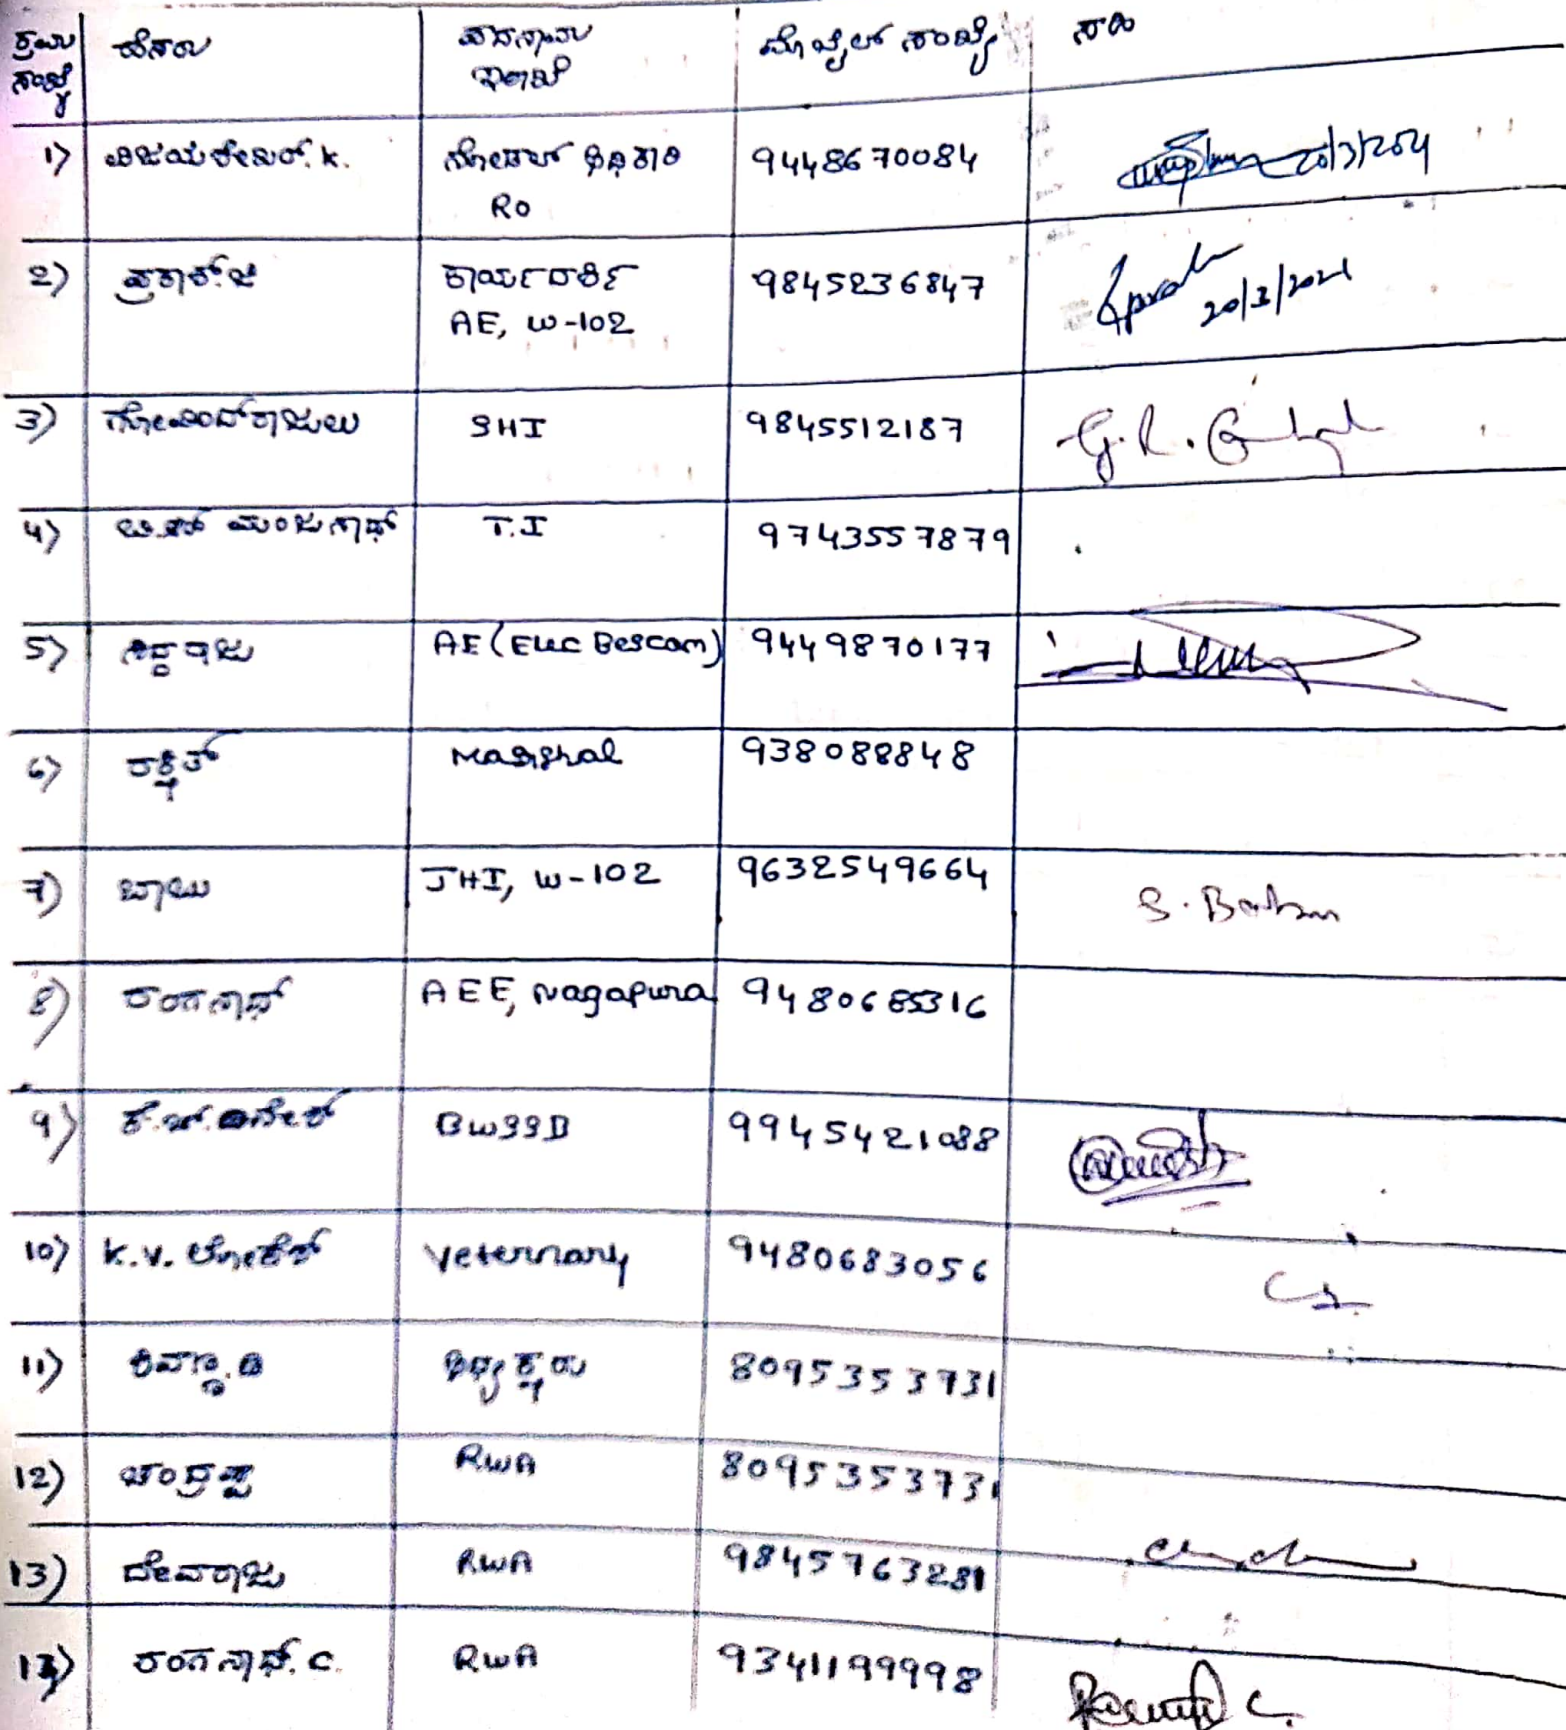 ಕ್ರಮ ಸಂಖ್ಯೆ ಹೆಸರು ಪದನಾಮ ಇಲಾಖೆ ಮೊಬೈಲ್ ಸಂಖ್ಯೆ ಸಹಿ
1) ವಿಜಯಶೇಖರ್. K. ನೋಡಲ್ ಅಧಿಕಾರಿ 9448670084
RO
2) ಪ್ರಕಾಶ್.ಜಿ ಕಾರ್ಯದರ್ಶಿ 9845236847 20/3/2021
AE, W-102
3) ಗೋವಿಂದ್‌ರಾಜುಲು SHI 9845512187 G.R.
4) ಮಂಜುನಾಥ್ T.I 9743557879
5) ಸಿದ್ದರಾಜು AE (Elec Bescom) 9449870177
6) ರಕ್ಷಿತ್ Marshal 938088848
7) ಬಾಬು JHI, W-102 9632549664 S. Babu
8) ರಂಗನಾಥ್ AEE, Nagapura 9480685316
9) ಕೆ.ಎಚ್.ದಿನೇಶ್ BWSSB 9945421088
10) K.V. ಲೋಕೇಶ್ Veternary 9480683056
11) ಶಿವಣ್ಣ.ಡಿ ಅಧ್ಯಕ್ಷರು 8095353731
12) ಚಂದ್ರಪ್ಪ RWA 8095353731
13) ದೇವರಾಜು RWA 9845763281
ರಂಗನಾಥ್. C. RWA 9341199998